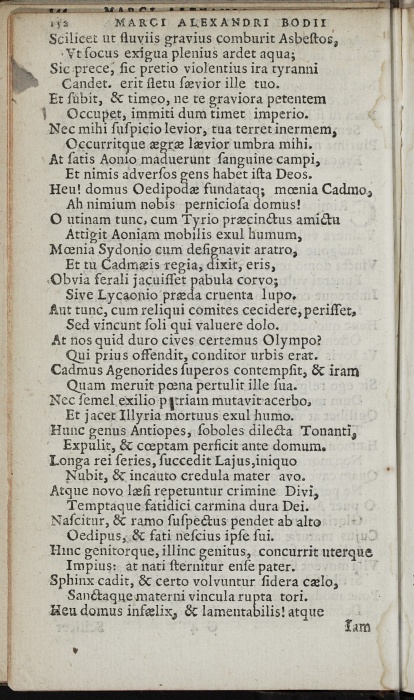 152 MARCI ALEXANDRI BODII
Scilicet ut fluviis gravius comburit Asbestos,
Vt focus exigua plenius ardet aqua;
Sic prece, sic pretio violentius ira tyranni
Candet. erit fletu sævior ille tuo.
Et subit, & timeo, ne te graviora petentem
Occupet, immiti dum timet imperio.
Nec mihi suspicio levior, tua terret inermem,
Occurritque ægræ lævior umbra mihi.
At satis Aonio maduerunt sanguine campi,
Et nimis adversos gens habet ista Deos.
Heu! domus Oedipodæ fundataq; mœnia Cadmo,
Ah nimium nobis perniciosa domus!
O utinam tunc, cum Tyrio præcinctus amictu
Attigit Aoniam mobilis exul humum,
Mœnia Sydonio cum designavit aratro,
Et tu Cadmæis regia, dixit, eris,
Obvia ferali jacuisset pabula corvo;
Sive Lycaonio præda cruenta lupo.
Aut tunc, cum reliqui comites cecidere, perisset,
Sed vincunt soli qui valuere dolo.
At nos quid duro cives certemus Olympo?
Qui prius offendit, conditor urbis erat.
Cadmus Agenorides superos contempsit, & iram
Quam meruit pœna pertulit ille sua.
Nec semel exilio patriam mutavit acerbo,
Et jacet Illyria mortuus exul humo.
Hunc genus Antiopes, soboles dilecta Tonanti,
Expulit, & cœptam perficit ante domum.
Longa rei series, succedit Lajus, iniquo
Nubit, & incauto credula mater avo.
Atque novo læsi repetuntur crimine Divi,
Temptaque fatidici carmina dura Dei.
Nascitur, & ramo suspectus pendet ab alto
Oedipus, & fati nescius ipse sui.
Hinc genitorque, illinc genitus, concurrit uterque
Impius: at nati sternitur ense pater.
Sphinx cadit, & certo volvuntur sidera cælo,
Sanctaque materni vincula rupta tori.
Heu domus infælix, & lamentabilis! atque
Iam